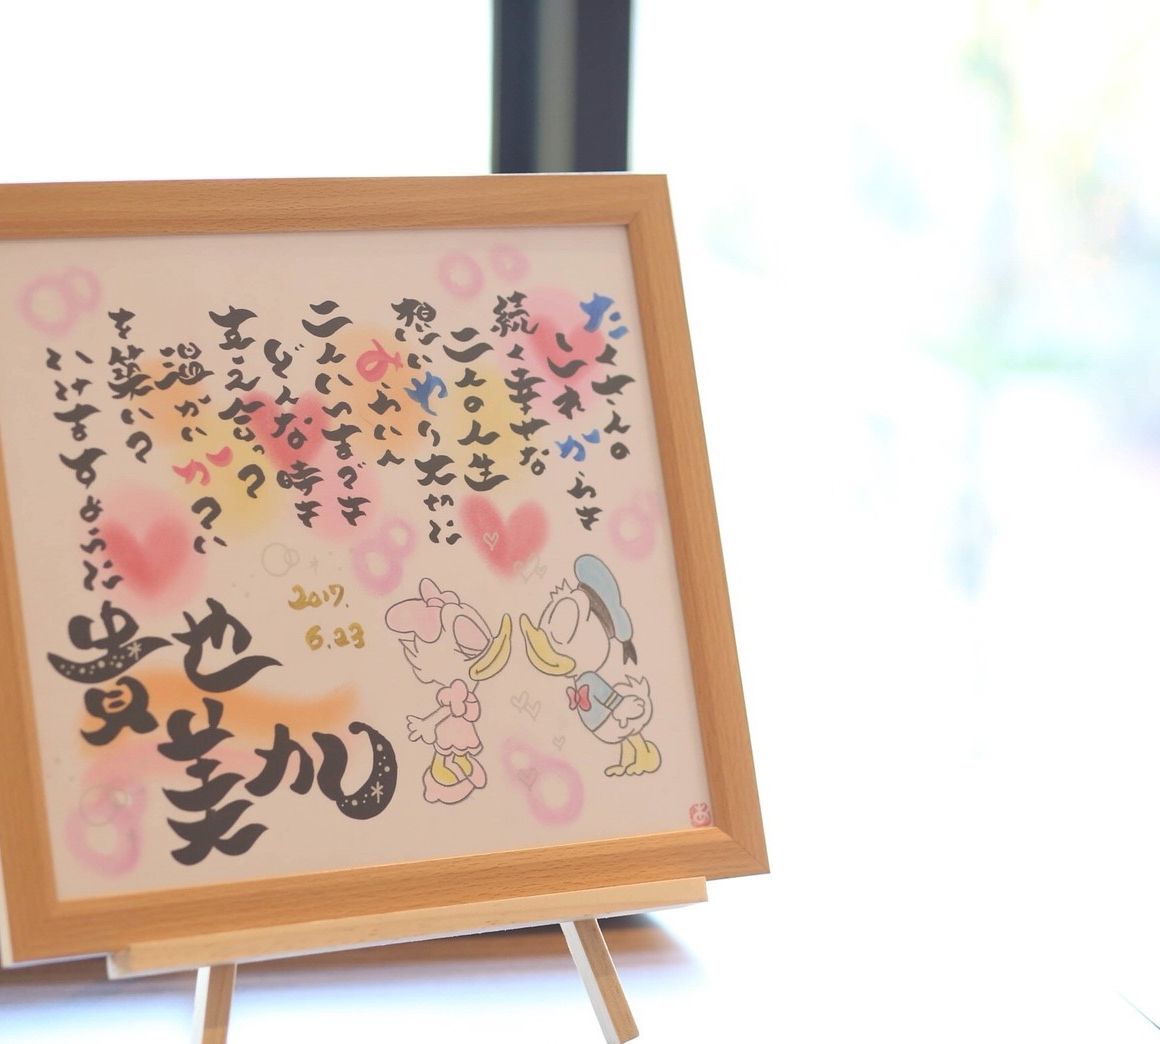 たくさんの
これからも
続く幸せな
二人の人生
想いやり大切に
みらいへ
二人いつまでも
どんな時も
支え合って
温かいかてい
を築いて
いけますように
2017.
6.23
貴也
美加